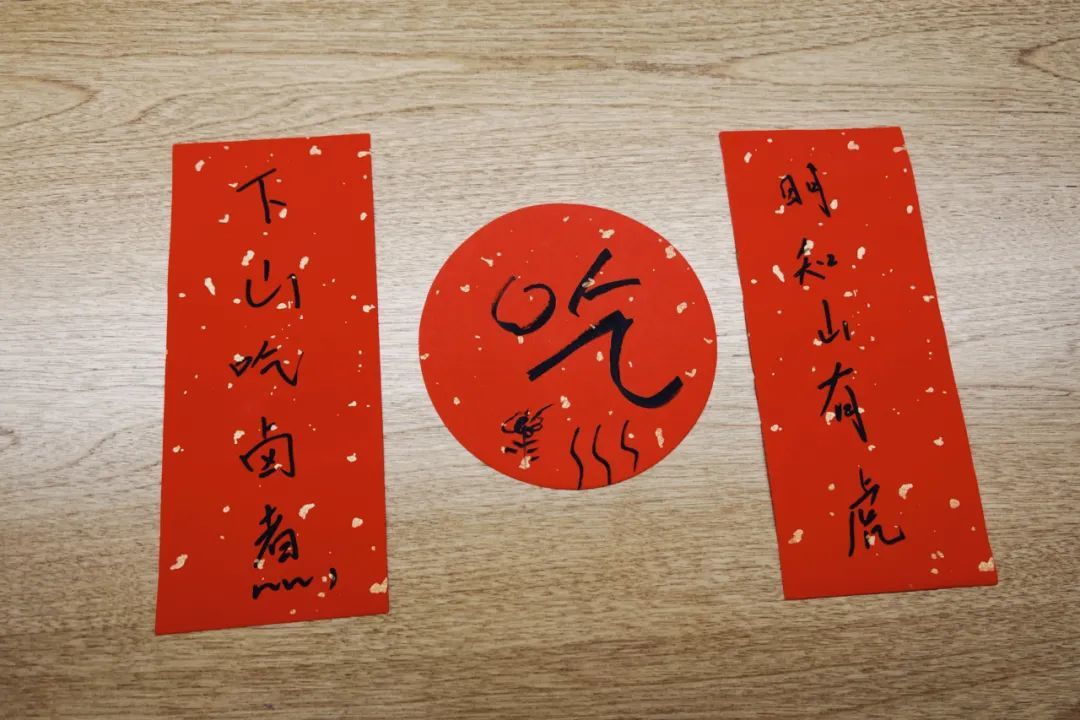 明知山有虎
吃
下山吃卤煮